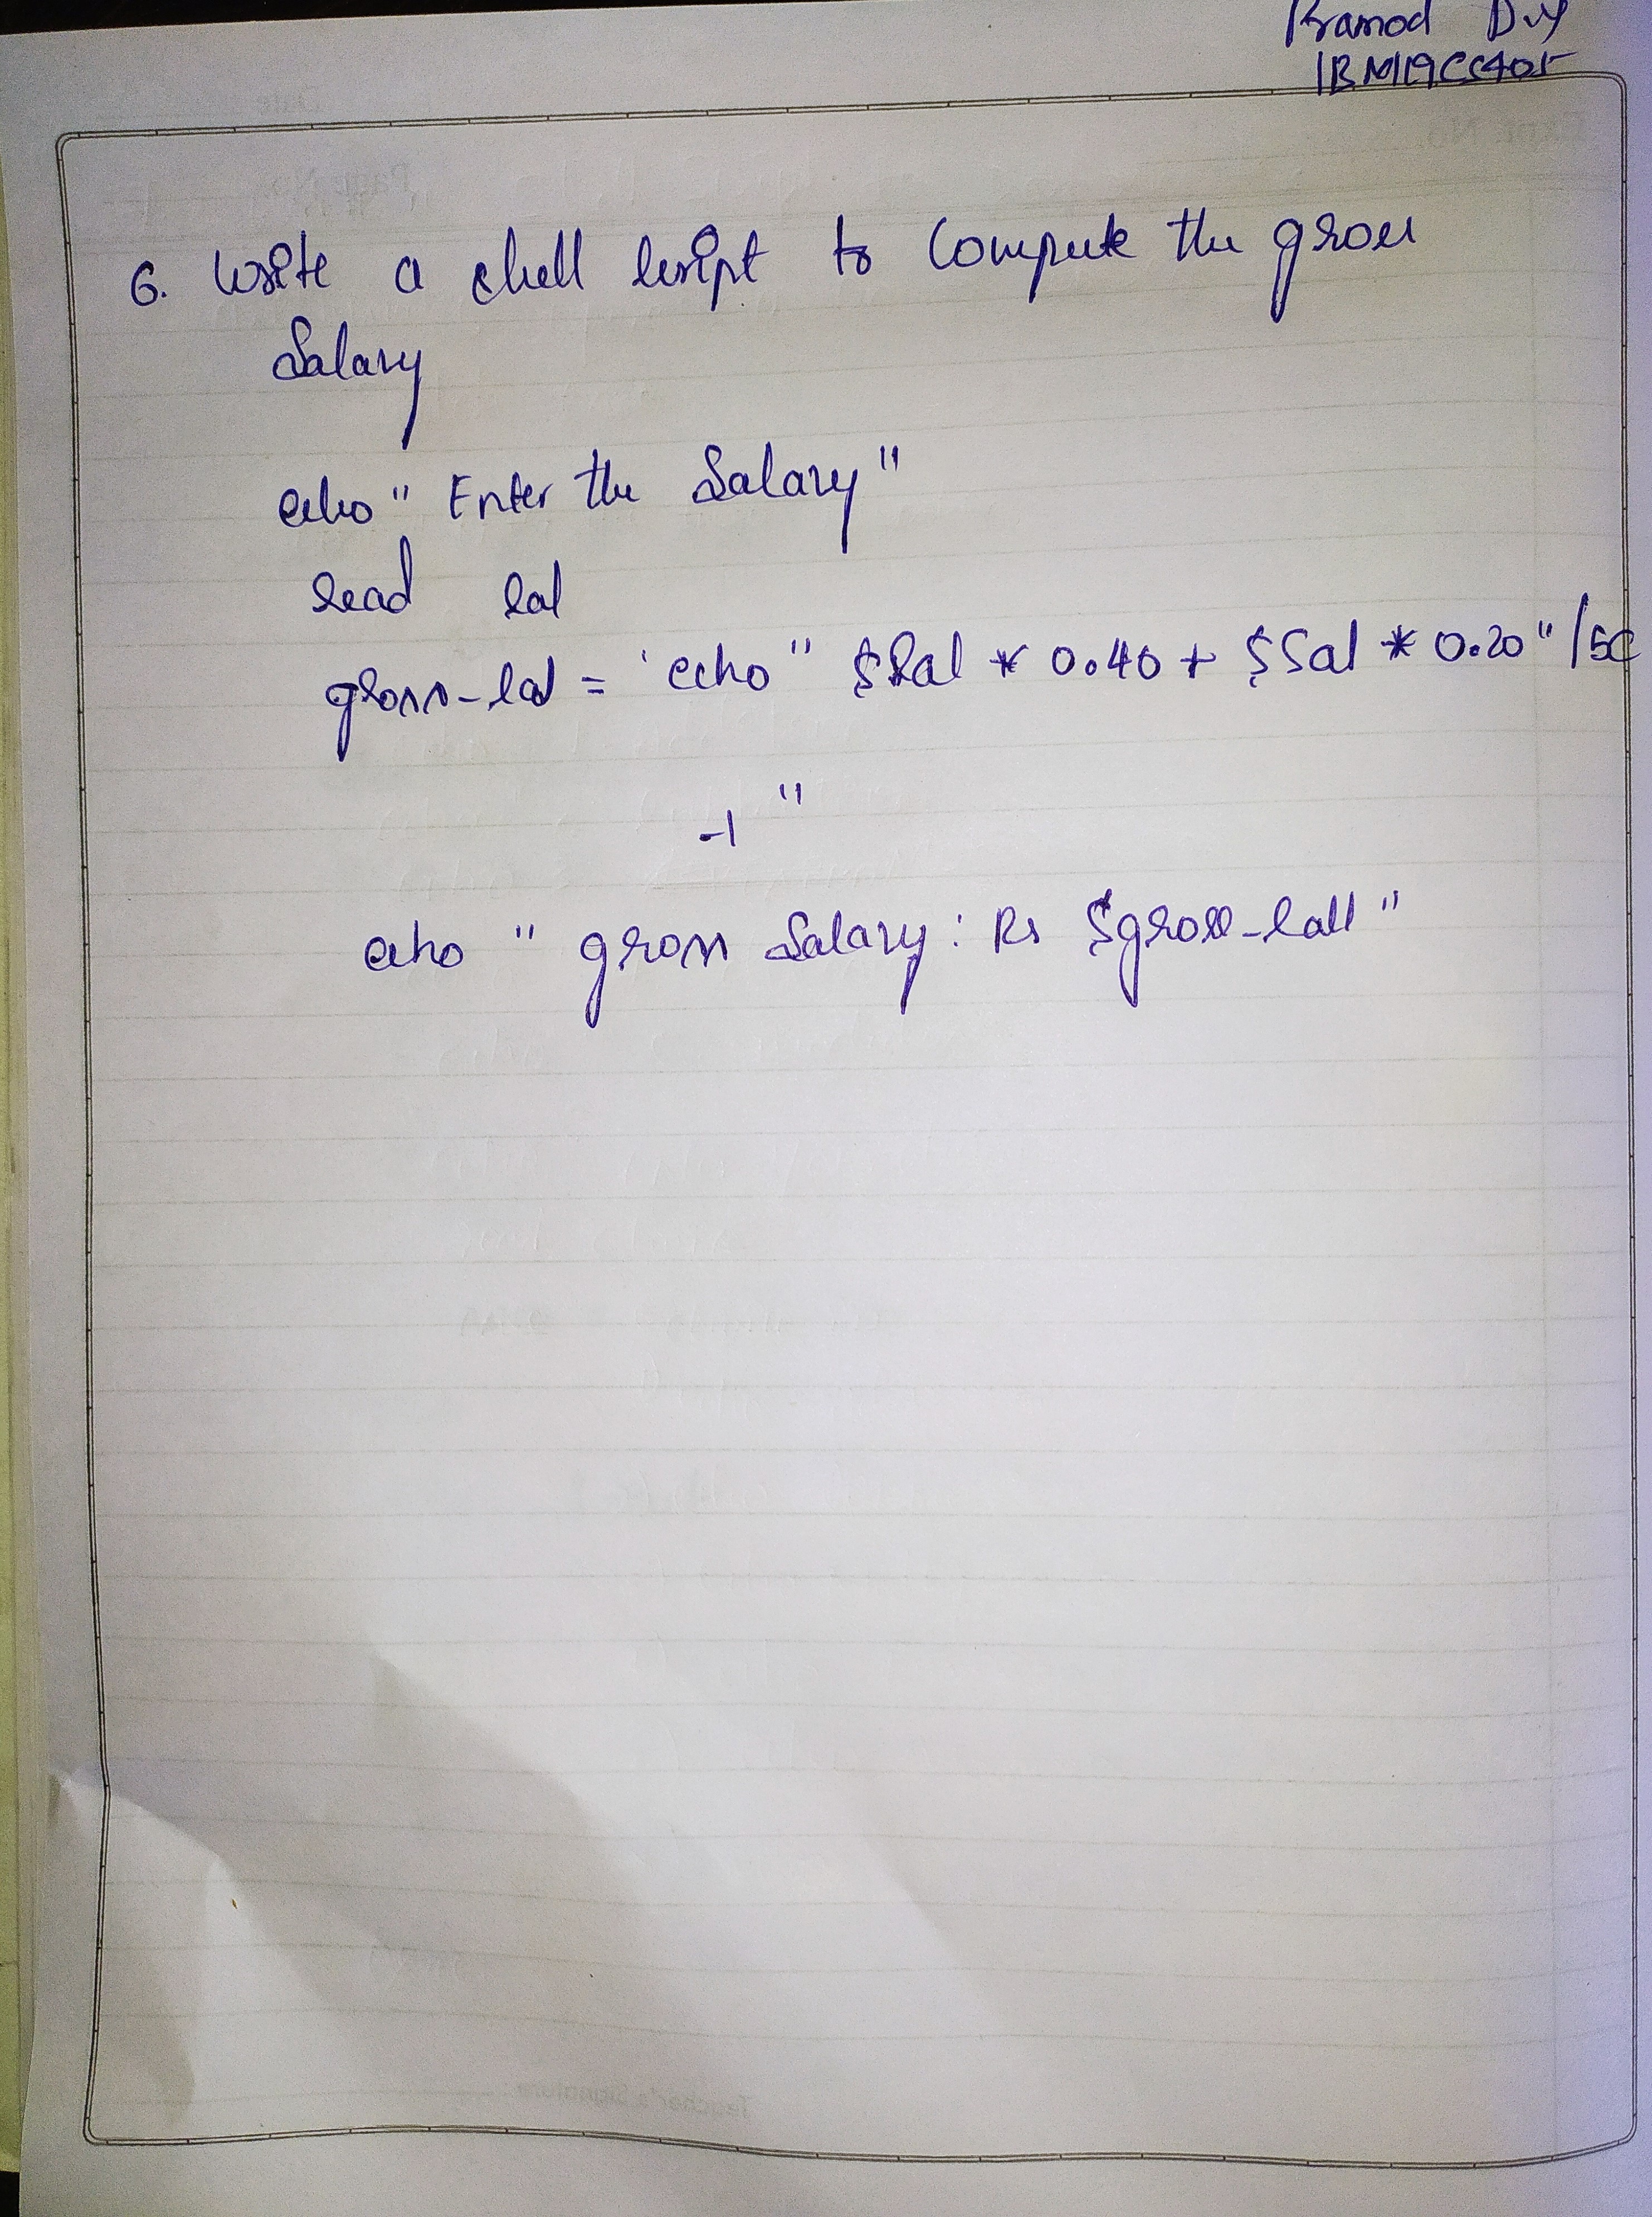 Pramod D.Y
1BM19CS405
6. Write a shell script to Compute the gross
Salary
echo " Enter the Salary"
read sal
gross-sal = 'echo " $Sal * 0.40 + $Sal * 0.20 " /bc
-l "
echo " gross Salary: Rs $gross-sall "